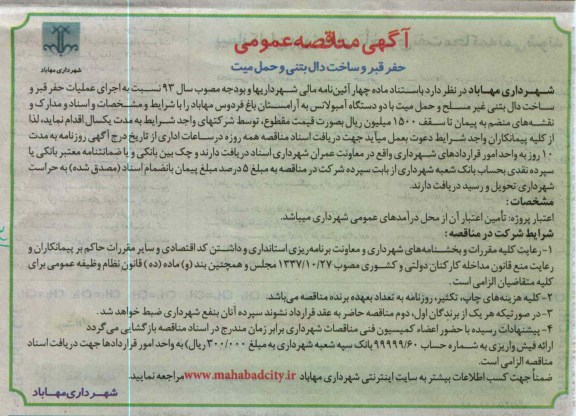 آگهی مناقصه عمومی
حفر قبر و ساخت دال بتنی و حمل میت
شهرداری مهاباد
شهرداری مهاباد در نظر دارد باستناد ماده چهار آئین‌نامه مالی شهرداریها و بودجه مصوب سال ۹۳ نسبت به اجرای عملیات حفر قبر و
ساخت دال بتنی غیر مسلح و حمل میت با دو دستگاه آمبولانس به آرامستان باغ فردوس مهاباد را با شرایط و مشخصات و اسناد و مدارک و
نقشه‌های منضم به پیمان تا سقف ۱۵۰۰ میلیون ریال بصورت قیمت مقطوع، توسط شرکتهای واجد شرایط به مدت یکسال اقدام نماید، لذا
از کلیه پیمانکاران واجد شرایط دعوت بعمل میآید جهت دریافت اسناد مناقصه همه روزه در ساعات اداری از تاریخ درج آگهی روزنامه به مدت
۱۰ روز به واحد امور قراردادهای شهرداری واقع در معاونت عمران شهرداری اسناد دریافت دارند و چک بین بانکی و یا ضمانتنامه معتبر بانکی یا
سپرده نقدی بحساب بانک شعبه شهرداری از بابت سپرده شرکت در مناقصه به مبلغ ۵ درصد مبلغ پیمان بانضمام اسناد (مصدق شده) به حراست
شهرداری تحویل و رسید دریافت دارند.
مشخصات:
اعتبار پروژه: تأمین اعتبار آن از محل درآمدهای عمومی شهرداری میباشد.
شرایط شرکت در مناقصه:
۱- رعایت کلیه مقررات و بخشنامه‌های شهرداری و معاونت برنامه‌ریزی استانداری و داشتن کد اقتصادی و سایر مقررات حاکم بر پیمانکاران و
رعایت منع قانون مداخله کارکنان دولتی و کشوری مصوب ۱۳۳۷/۱۰/۲۷ مجلس و همچنین بند (و) ماده (ده) قانون نظام وظیفه عمومی برای
کلیه متقاضیان الزامی است.
۲- کلیه هزینه‌های چاپ، تکثیر، روزنامه به تعداد بعهده برنده مناقصه می‌باشد.
۳- در صورتیکه هر یک از برندگان اول، دوم مناقصه حاضر به عقد قرارداد نشوند سپرده آنان بنفع شهرداری ضبط خواهد شد.
۴- پیشنهادات رسیده با حضور اعضاء کمیسیون فنی مناقصات شهرداری برابر زمان مندرج در اسناد مناقصه بازگشایی می‌گردد
ارائه فیش واریزی به شماره حساب ۹۹۹۹۹/۶۰ بانک سپه شعبه شهرداری به مبلغ ۳۰۰/۰۰۰ ریال) به واحد امور قراردادها جهت دریافت اسناد
مناقصه الزامی است.
ضمناً جهت کسب اطلاعات بیشتر به سایت اینترنتی شهرداری مهاباد www.mahabadcity.ir مراجعه نمایید.
شهرداری مهاباد